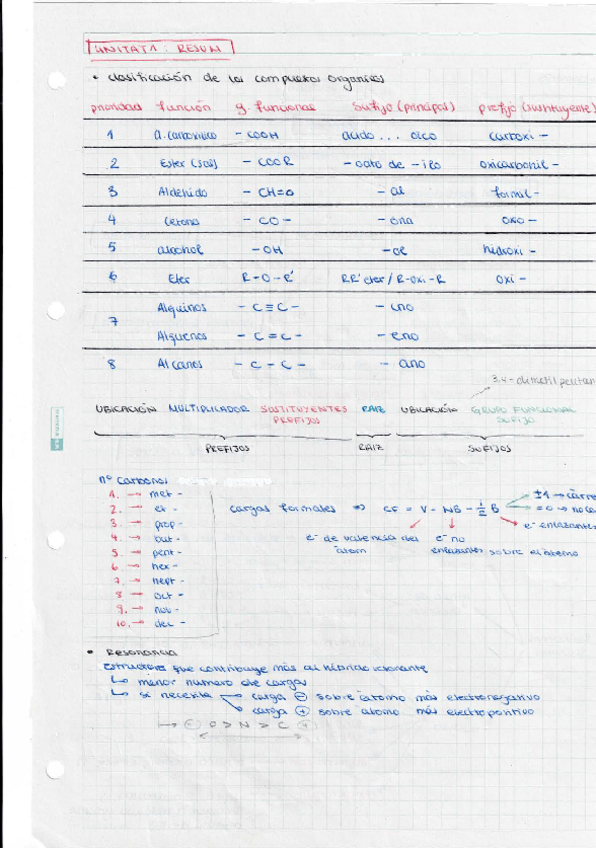 UNITAT 1: RESUM
• Clasificación de los compuestos orgánicos
prioridad función g. funcional sufijo (principal) prefijo (sustituyente)
1 a. carboxílico - COOH ácido ... oico carboxi -
2 Ester (sal) - COOR - oato de - ilo oxicarbonil -
3 Aldehido - CH=O - al formil -
4 Cetona - CO - - ona oxo -
5 alcohol - OH - ol hidroxi -
6 Eter R - O - R' RR' eter / R-oxi-R oxi -
7 Alquinos - C ≡ C - - ino
Alquenos - C = C - - eno
8 Alcanos - C - C - - ano
3,4-dimetilpentan
UBICACIÓN MULTIPLICADOR SUSTITUYENTES RAIZ UBICACIÓN GRUPO FUNCIONAL
PREFIJOS SUFIJO
PREFIJOS RAIZ SUFIJOS
nº Carbonos
1. → met -
2. → et -
3. → prop -
4. → but -
5. → pent -
6. → hex -
7. → hept -
8 → oct -
9. → non -
10. → dec -
cargas formales ⇒ CF = V - NB - 1/2 B
±1 → càrre
= 0 → no cà
e⁻ enlazantes
e⁻ de valencia del e⁻ no
àtom enlazantes sobre el átomo
• Resonancia
Estructura que contribuye más al híbrido resonante
↳ menor numero de cargas
↳ si necesita carga ⊖ sobre átomo más electronegativo
carga ⊕ sobre átomo más electropositivo
↳ ⊖ O > N > C ⊕